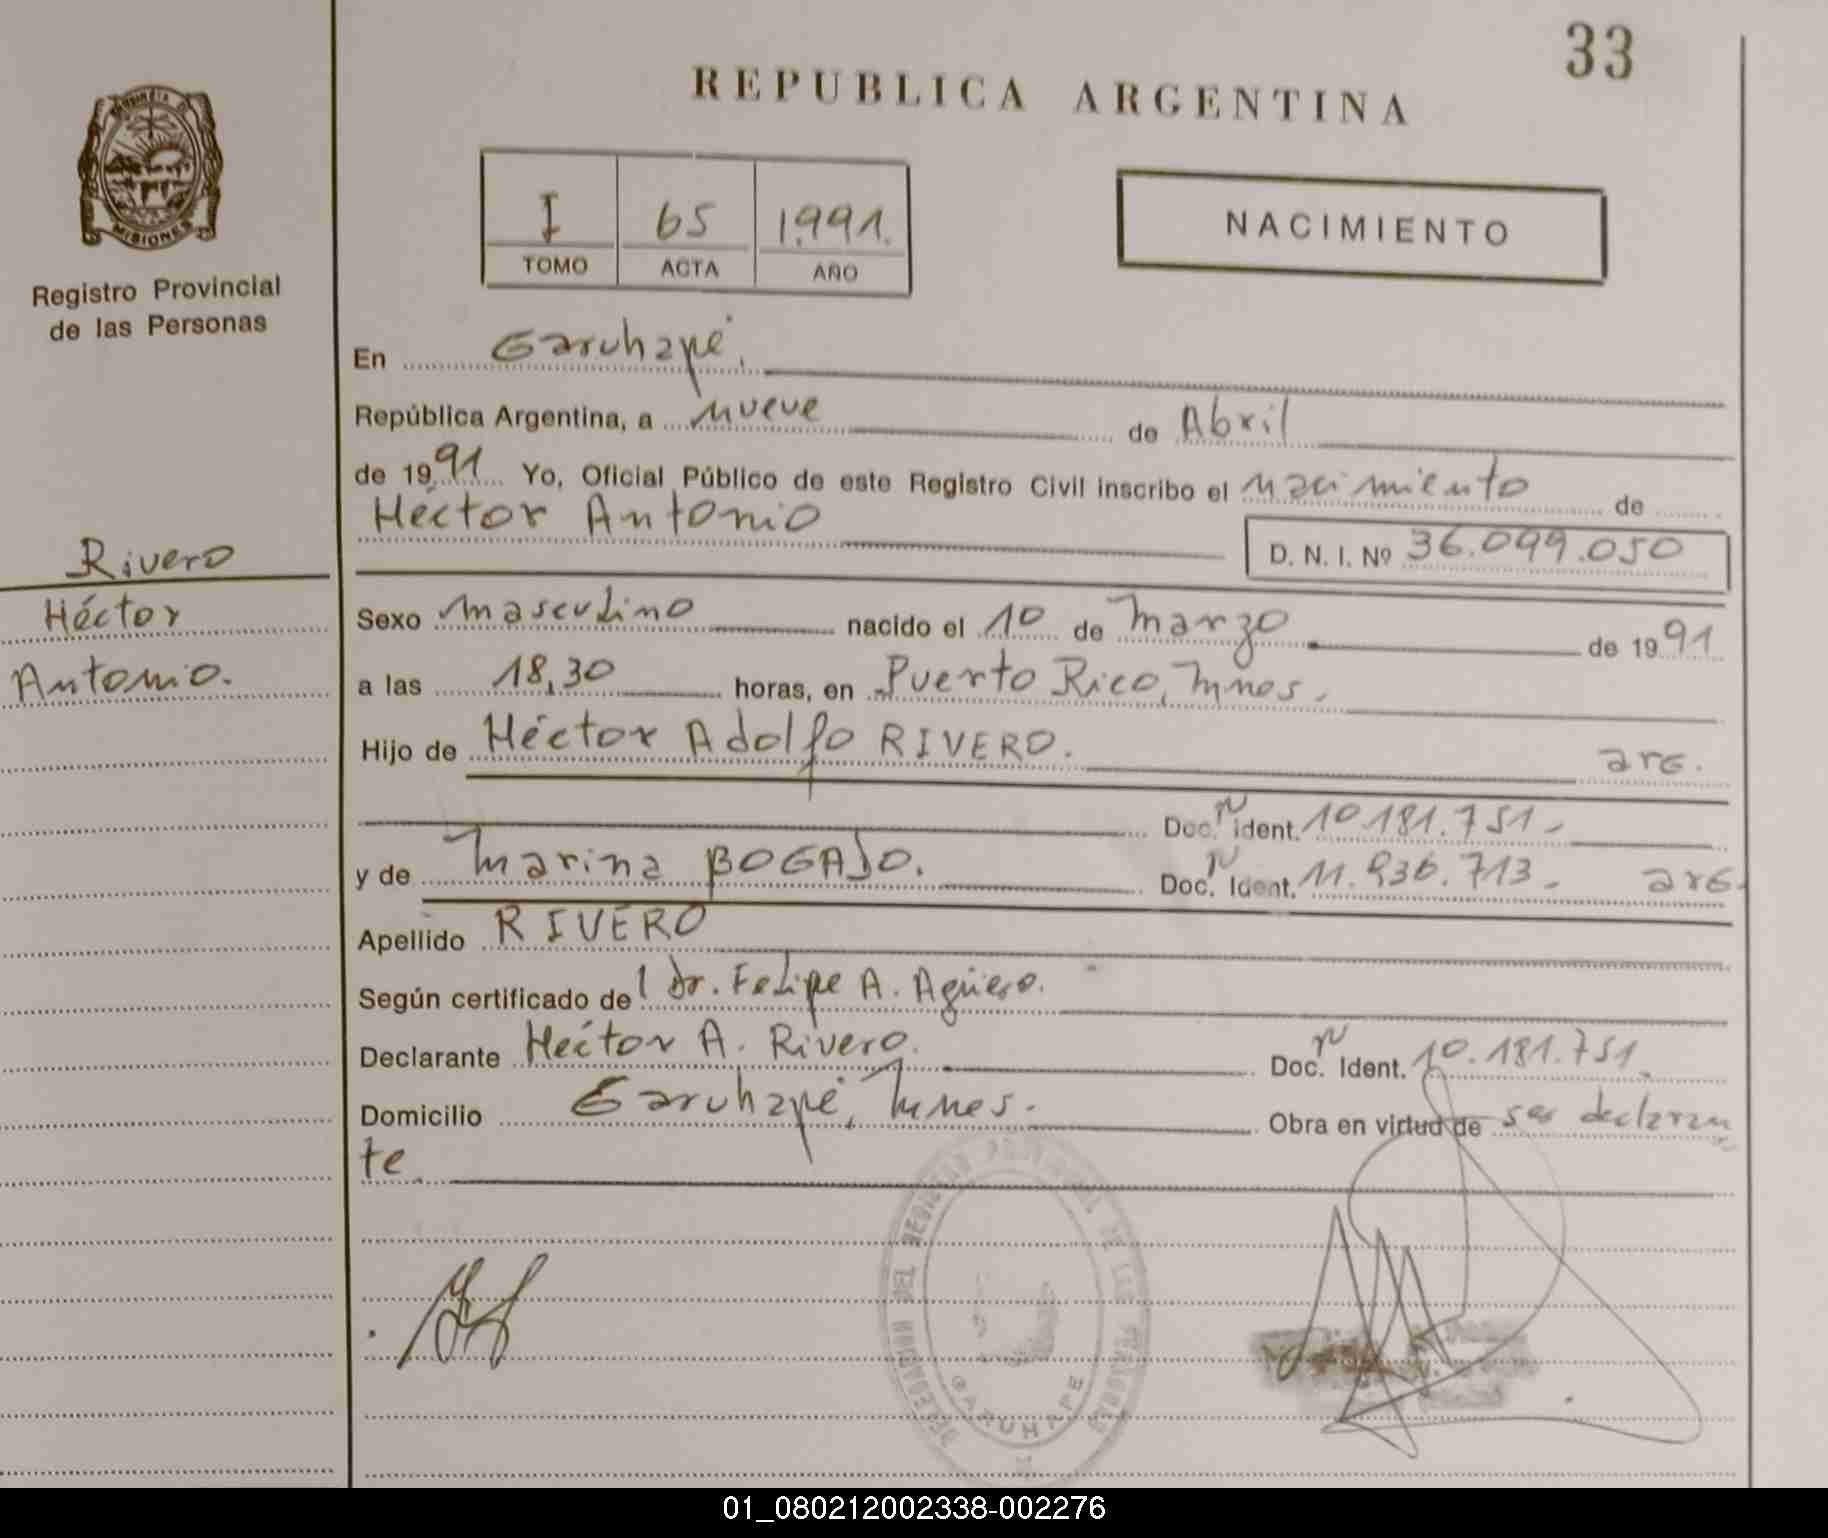 33
REPUBLICA ARGENTINA
PROVINCIA DE
MISIONES
Registro Provincial
de las Personas
I 65 1.991.
TOMO ACTA AÑO
NACIMIENTO
En Garuhapé,
República Argentina, a nueve de Abril
de 1991 Yo, Oficial Público de este Registro Civil inscribo el nacimiento de
Héctor Antonio
D. N. I. Nº 36.099.050
Rivero
Héctor
Antonio.
Sexo masculino nacido el 10 de marzo de 1991
a las 18,30 horas, en Puerto Rico, Mnes.
Hijo de Héctor Adolfo RIVERO. arg.
Doc. N Ident. 10.181.751.-
y de Marina BOGADO. Doc. N Ident. 11.936.713.- arg.
Apellido RIVERO
Según certificado de l Dr. Felipe A. Agüero.
Declarante Héctor A. Rivero. Doc. N Ident. 10.181.751.
Domicilio Garuhapé, Mnes. Obra en virtud de ser declaran
te.
DELEGACION DEL REGISTRO PROVINCIAL DE LAS PERSONAS
GARUHAPE
01_080212002338-002276